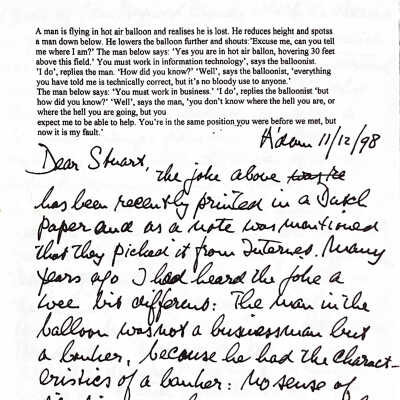 A man is flying in hot air balloon and realises he is lost. He reduces height and spotss
a man down below. He lowers the balloon further and shouts:'Excuse me, can you tell
me where I am?' The man below says: 'Yes you are in hot air ballon, hovering 30 feet
above this field.' You must work in information technology', says the balloonist.
'I do', replies the man. 'How did you know?' 'Well', says the balloonist, 'everything
you have told me is technically correct, but it's no bloody use to anyone.'
The man below says: 'You must work in business.' 'I do', replies the balloonist 'but
how did you know?' 'Well', says the man, 'you don't know where the hell you are, or
where the hell you are going, but you
expect me to be able to help. You're in the same position you were before we met, but
now it is my fault.'
A'dam 11/12/98
Dear Stuart,
the joke above was
has been recently printed in a Dutch
paper and as a note was mentioned
that they picked it from Internet. Many
years ago I had heard the joke a
wee bit different: The man in the
balloon was not a businessman but
a banker, because he had the charact-
eristics of a banker: No sense of